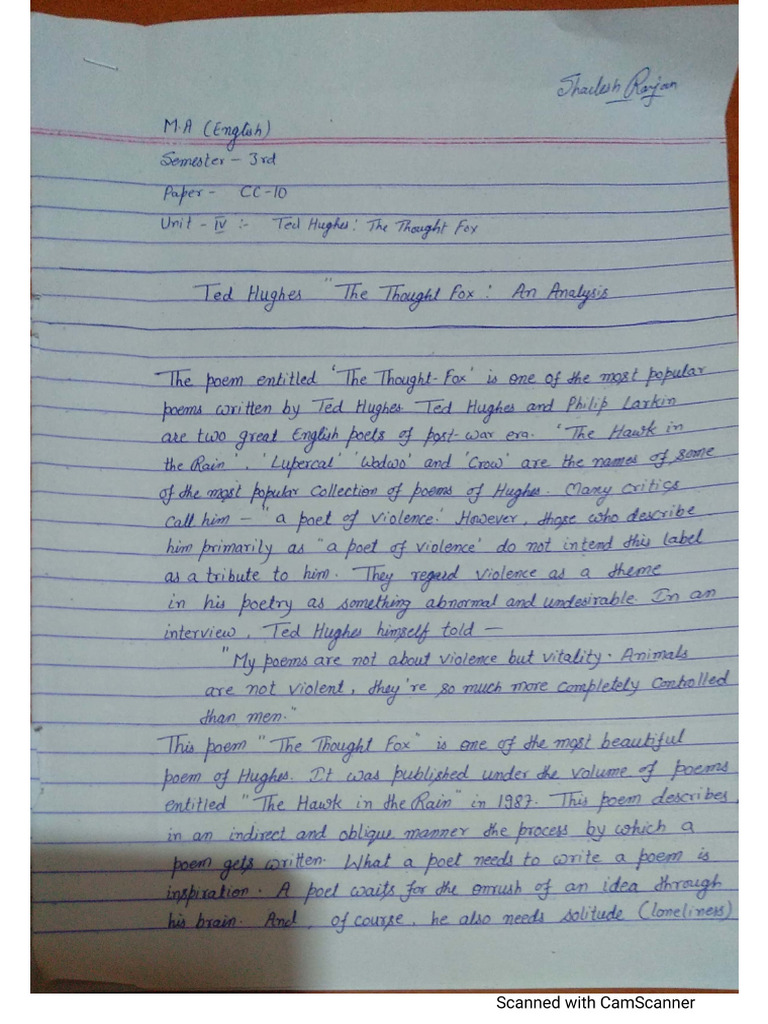 Shailesh Ranjan
M.A (English)
Semester - 3rd
Paper - CC-10
Unit - IV :- Ted Hughes: The Thought Fox
Ted Hughes "The Thought Fox: An Analysis
The poem entitled 'The Thought-Fox' is one of the most popular
poems written by Ted Hughes. Ted Hughes and Philip Larkin
are two great English poets of post-war era. 'The Hawk in
the Rain', 'Lupercal' 'Wodwo' and 'Crow' are the names of some
of the most popular collection of poems of Hughes. Many critics
call him - "a poet of violence.' However, those who describe
him primarily as "a poet of violence' do not intend this label
as a tribute to him. They regard violence as a theme
in his poetry as something abnormal and undesirable. In an
interview, Ted Hughes himself told —
"My poems are not about violence but vitality. Animals
are not violent, they're so much more completely controlled
than men."
This poem "The Thought Fox" is one of the most beautiful
poem of Hughes. It was published under the volume of poems
entitled "The Hawk in the Rain" in 1987. This poem describes
in an indirect and oblique manner the process by which a
poem gets written. What a poet needs to write a poem is
inspiration. A poet waits for the onrush of an idea through
his brain. And, of course, he also needs solitude (loneliness)
Scanned with CamScanner